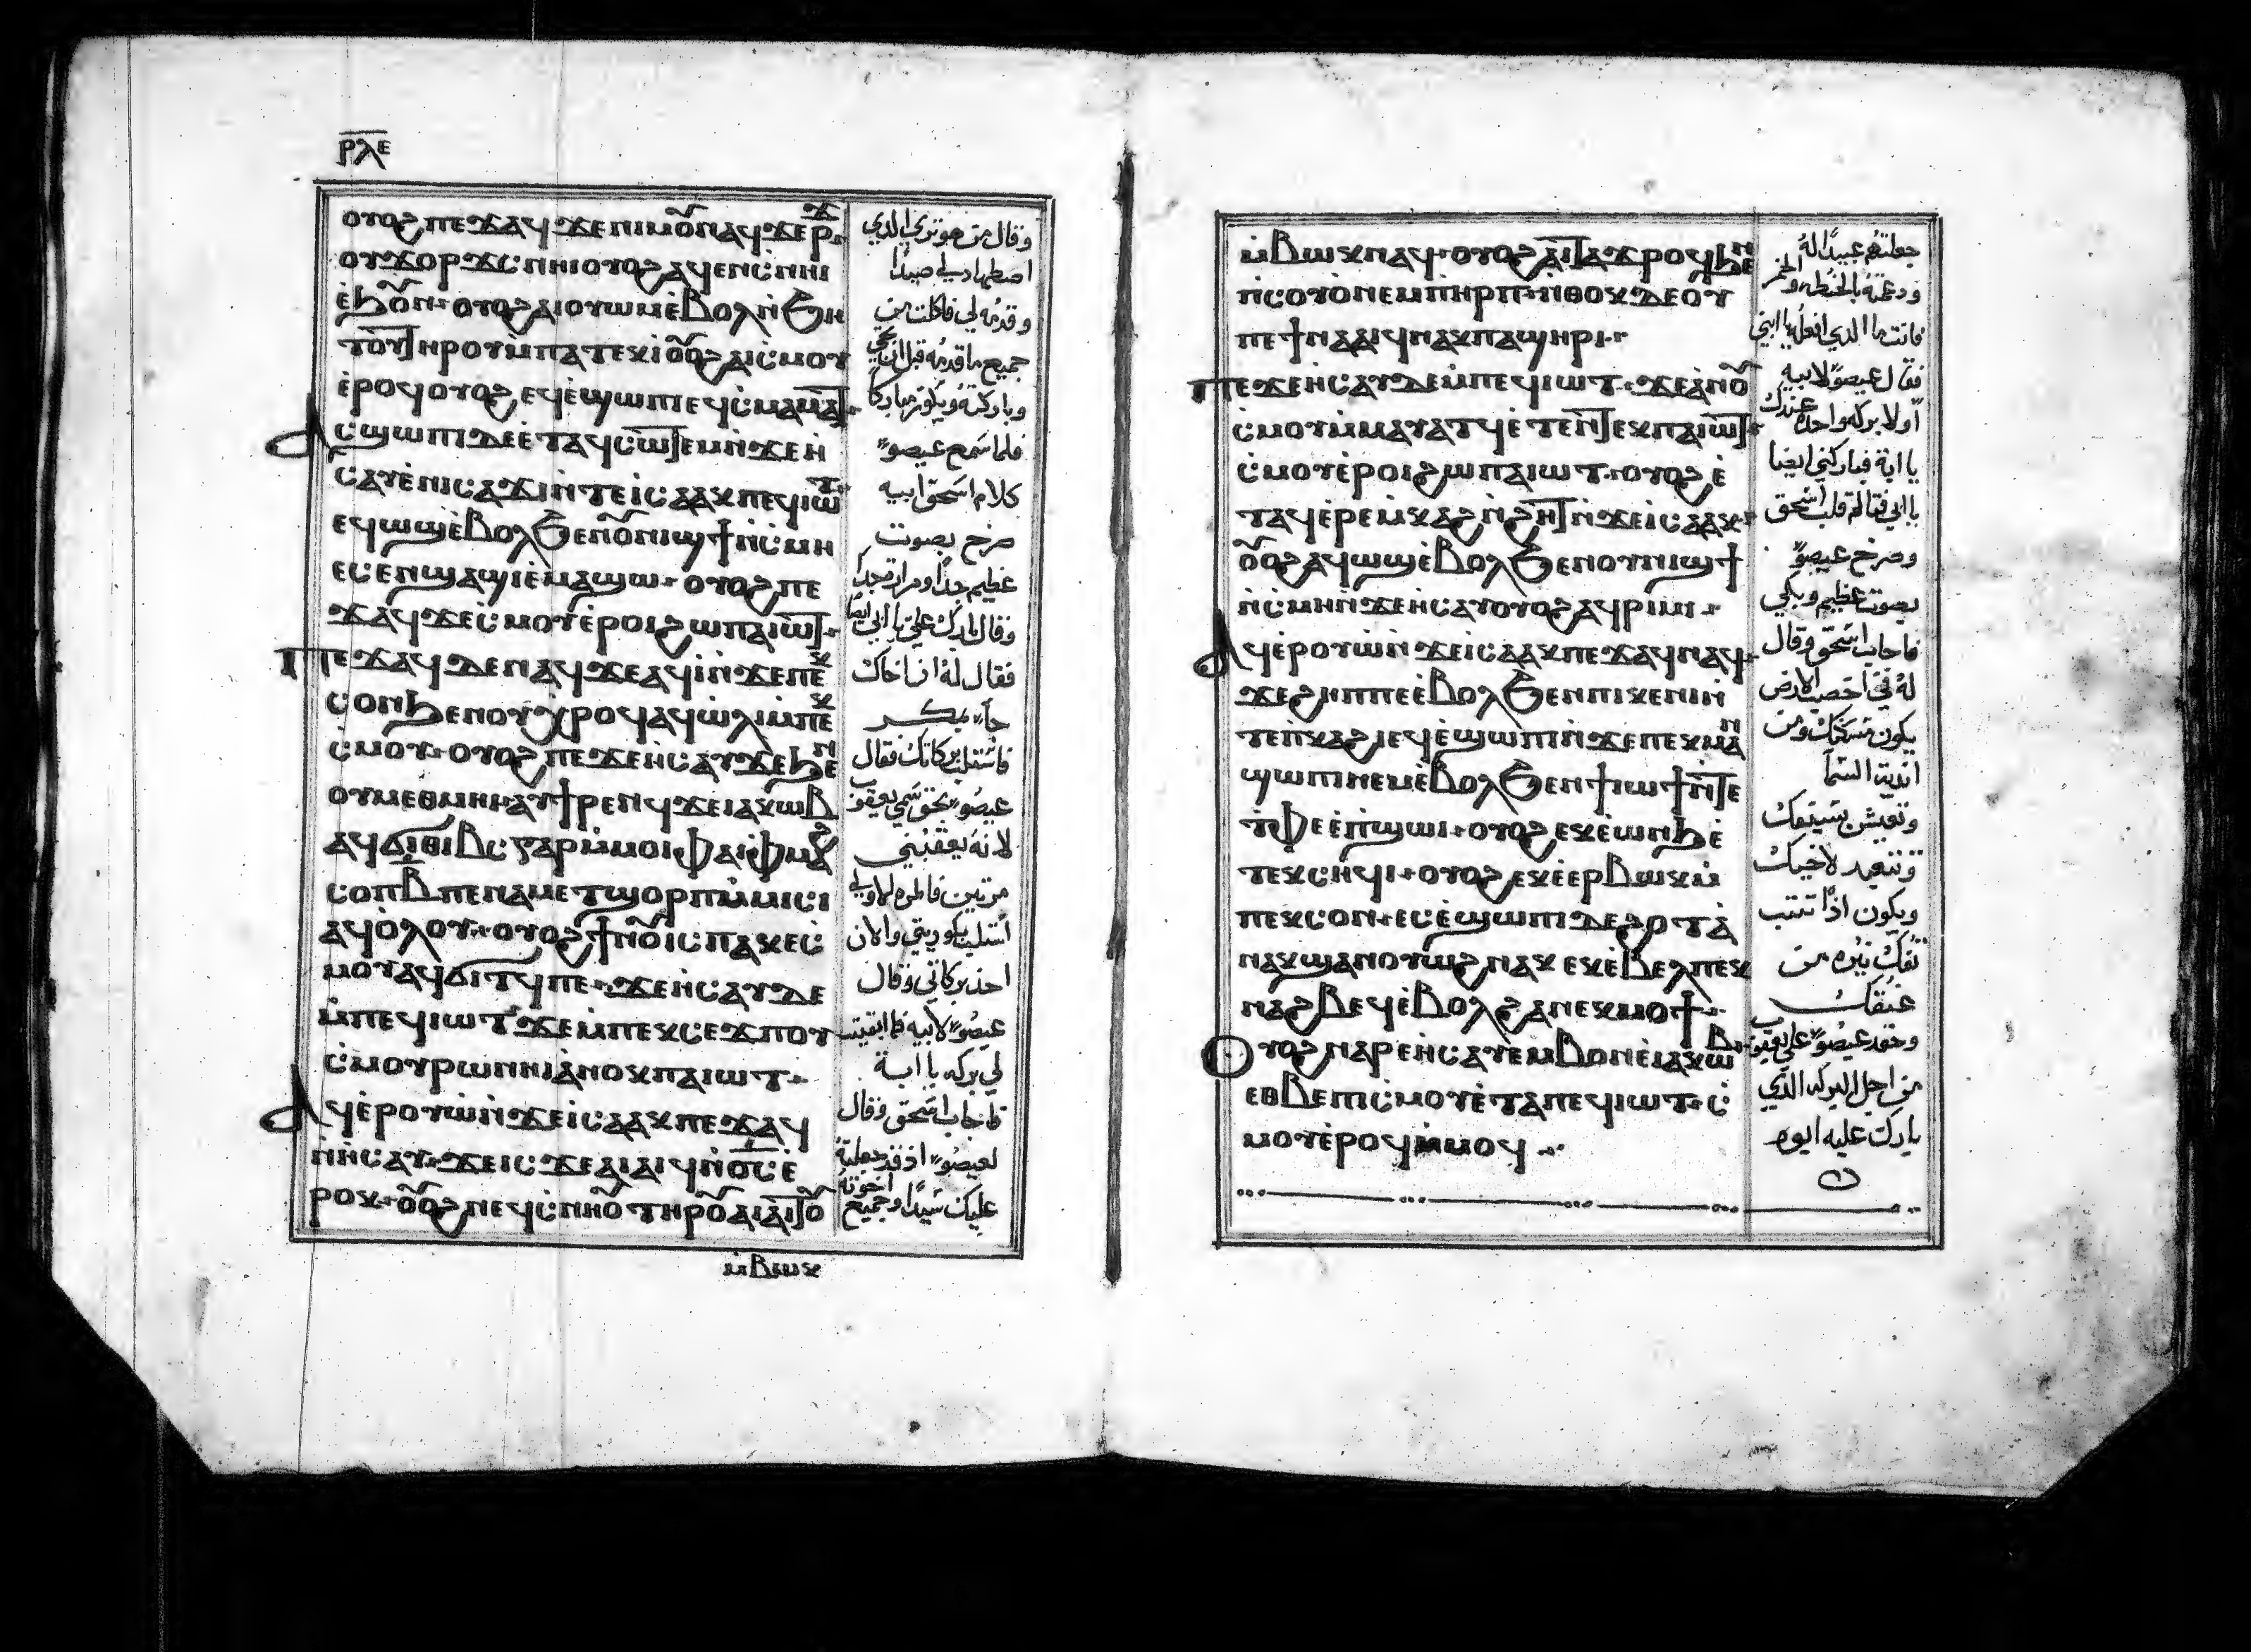 ⲣⲗⲉ
ⲟⲩⲟϩ ⲡⲉϫⲁϥ ϫⲉ ⲛⲓⲙ ⲟⲩⲛ ⲁϥϫⲉⲣϫ
ⲟⲩϫⲟⲣϫⲥ ⲛⲏⲓ ⲟⲩⲟϩ ⲁϥⲉⲛⲥ ⲛⲏⲓ
ⲉ̀ϧⲟⲩⲛ ⲟⲩⲟϩ ⲁⲓⲟⲩⲱⲙ ⲉ̀ⲃⲟⲗ ϧⲉⲛ
ⲧⲟⲩ ⲧⲏⲣⲟⲩ ⲙ̀ⲡⲁⲧⲉⲕⲓ̀ ⲟⲩⲟϩ ⲁⲓⲥ̀ⲙⲟⲩ
ⲉ̀ⲣⲟϥ ⲟⲩⲟϩ ⲉϥⲉ̀ϣⲱⲡⲓ ⲉϥⲥ̀ⲙⲁⲙⲁⲧ
ⲁⲥϣⲱⲡⲓ ⲇⲉ ⲉ̀ⲧⲁϥⲥⲱⲧⲉⲙ ⲛ̀ϫⲉ ⲏ̀
ⲥⲁⲩ ⲉ̀ⲛⲓⲥⲁϫⲓ ⲛ̀ⲧⲉ ⲓ̀ⲥⲁⲁⲕ ⲡⲉϥⲓⲱⲧ
ⲉϥⲱϣ ⲉ̀ⲃⲟⲗ ϧⲉⲛ ⲟⲩⲛⲓϣϯ ⲛ̀ⲥ̀ⲙⲏ
ⲉⲥⲉⲛϣⲁϣⲓ ⲉ̀ⲙⲁϣⲱ ⲟⲩⲟϩ ⲡⲉ
ϫⲁϥ ϫⲉ ⲥ̀ⲙⲟⲩ ⲉ̀ⲣⲟⲓ ϩⲱ ⲡⲁⲓⲱⲧ
ⲡⲉϫⲁϥ ⲇⲉ ⲛⲁϥ ϫⲉ ⲁϥⲓ̀ ⲛ̀ϫⲉ ⲡⲉⲕ
ⲥⲟⲛ ϧⲉⲛ ⲟⲩⲭⲣⲟϥ ⲁϥⲱ̀ⲗⲓ ⲙ̀ⲡⲉⲕ
ⲥ̀ⲙⲟⲩ ⲟⲩⲟϩ ⲡⲉϫⲉ ⲏ̀ⲥⲁⲩ ϫⲉ ϧⲉⲛ
ⲟⲩⲙⲉⲑⲙⲏⲓ ⲁⲩϯⲣⲉⲛϥ ϫⲉ ⲓⲁⲕⲱⲃ
ⲁϥϭⲓⲑⲓⲃⲥ ⲅⲁⲣ ⲙ̀ⲙⲟⲓ ⲫⲁⲓ ⲫⲙⲁϩ
ⲥⲟⲡ ⲃ̅ ⲡⲉ ⲛⲁⲙⲉⲧϣⲟⲣⲡ ⲙ̀ⲙⲓⲥⲓ
ⲁϥⲟ̀ⲗⲟⲩ ⲟⲩⲟϩ ϯⲛⲟⲩ ⲓⲥ ⲡⲁⲕⲉⲥ̀
ⲙⲟⲩ ⲁϥϭⲓⲧϥ ⲡⲉϫⲉ ⲏ̀ⲥⲁⲩ ⲇⲉ
ⲙ̀ⲡⲉϥⲓⲱⲧ ϫⲉ ⲙ̀ⲡⲉⲕⲥⲉϫⲡ ⲟⲩ
ⲥ̀ⲙⲟⲩ ⲣⲱ ⲛⲏⲓ ⲁ̀ⲛⲟⲕ ⲡⲁⲓⲱⲧ
ⲁϥⲉ̀ⲣⲟⲩⲱ̀ ⲛ̀ϫⲉ ⲓ̀ⲥⲁⲁⲕ ⲡⲉϫⲁϥ
ⲛ̀ⲏ̀ⲥⲁⲩ ϫⲉ ⲓⲥϫⲉ ⲁⲓⲁⲓϥ ⲛ̀ⲟ̅ⲥ̅ ⲉ̀
ⲣⲟⲕ ⲟⲩⲟϩ ⲛⲉϥⲥ̀ⲛⲏⲟⲩ ⲧⲏⲣⲟⲩ ⲁⲓⲁⲓⲧⲟⲩ
ⲙ̀ⲃⲱⲕ
وقال من هو ترى الذي
اصطادلي صيدًا
وقدمه لي فاكلت من
جميع ما قدمه قبل ان تجي
وباركته ويكون مباركا
فلما سمع عيصو
كلام اسحق ابيه
صرخ بصوت
عظيم جدًا ومرارة جدًا
وقال بارك علي يا ابي ايضا
فقال له ان اخاك
جاء بمكر
فاستلب بركاتك فقال
عيصو بحق سمي يعقوب
لانه يعقبني
مرتين فالمره الاولي
استلب بكوريتي والان
اخذ بركاتي وقال
عيصو لابيه فما ابقيت
لي بركه يا ابة
فاجاب اسحق وقال
لعيصو اذ قد جعلته
عليك سيدًا وجميع اخوته
ⲙ̀ⲃⲱⲕ ⲛⲁϥ ⲟⲩⲟϩ ⲁⲓⲧⲁϫⲣⲟϥ ϧⲉⲛ
ⲡⲓⲥⲟⲩⲟ ⲛⲉⲙ ⲡⲏⲣⲡ ⲛ̀ⲑⲟⲕ ⲇⲉ ⲟⲩ
ⲡⲉϯⲛⲁⲁⲓϥ ⲛⲁⲕ ⲡⲁϣⲏⲣⲓ
ⲡⲉϫⲉ ⲏ̀ⲥⲁⲩ ⲇⲉ ⲙ̀ⲡⲉϥⲓⲱⲧ ϫⲉ ⲁ̀ⲛⲟⲩ
ⲥ̀ⲙⲟⲩ ⲙ̀ⲙⲁⲩⲁⲧϥ ⲉ̀ⲧⲉⲛⲧⲉⲕ ⲡⲁⲓⲱⲧ
ⲥ̀ⲙⲟⲩ ⲉ̀ⲣⲟⲓ ϩⲱ ⲡⲁⲓⲱⲧ ⲟⲩⲟϩ ⲉ̀
ⲧⲁϥⲉⲣⲉⲙⲕⲁϩ ⲛ̀ϩⲏⲧ ⲛ̀ϫⲉ ⲓⲥⲁⲁⲕ
ⲟⲩⲟϩ ⲁϥⲱϣ ⲉ̀ⲃⲟⲗ ϧⲉⲛ ⲟⲩⲛⲓϣϯ
ⲛ̀ⲥ̀ⲙⲏ ⲛ̀ϫⲉ ⲏ̀ⲥⲁⲩ ⲟⲩⲟϩ ⲁϥⲣⲓⲙⲓ
ⲁϥⲉ̀ⲣⲟⲩⲱ̀ ⲛ̀ϫⲉ ⲓ̀ⲥⲁⲁⲕ ⲡⲉϫⲁϥ ⲛⲁϥ
ϫⲉ ϩⲏⲡⲡⲉ ⲉ̀ⲃⲟⲗ ϧⲉⲛ ⲡⲓⲕⲉⲛⲓ ⲛ̀
ⲧⲉ ⲡⲕⲁϩⲓ ⲉϥⲉ̀ϣⲱⲡⲓ ⲛ̀ϫⲉ ⲡⲉⲕⲙⲁⲛ
ϣⲱⲡⲓ ⲛⲉⲙ ⲉ̀ⲃⲟⲗ ϧⲉⲛ ϯⲓⲱϯ ⲛ̀ⲧⲉ
ⲧⲫⲉ ⲉ̀ⲡϣⲱⲓ ⲟⲩⲟϩ ⲉⲕⲉ̀ⲱⲛϧ ⲉ̀
ⲧⲉⲕⲥⲏϥⲓ ⲟⲩⲟϩ ⲉⲕⲉ̀ⲉⲣⲃⲱⲕ ⲙ̀
ⲡⲉⲕⲥⲟⲛ ⲉⲥⲉ̀ϣⲱⲡⲓ ⲇⲉ ϩⲟⲧⲁ
ⲛ ⲁⲕϣⲁⲛⲟⲩⲱϩ ⲛⲁⲕ ⲉⲕⲉ̀ⲃⲉⲗ ⲡⲉⲕ
ⲛⲁϩⲃⲉϥ ⲉ̀ⲃⲟⲗ ϩⲁ ⲛⲉⲕⲙⲟϯ
ⲟⲩⲟϩ ⲛⲁⲣⲉ ⲏ̀ⲥⲁⲩ ⲉⲙⲃⲟⲛ ⲉ̀ⲓⲁⲕⲱⲃ
ⲉⲑⲃⲉ ⲡⲓⲥ̀ⲙⲟⲩ ⲉ̀ⲧⲁ ⲡⲉϥⲓⲱⲧ ⲥ̀
ⲙⲟⲩ ⲉ̀ⲣⲟϥ ⲙ̀ⲙⲟϥ
جعلتهم عبيدًا له
ودعمته بالحنطه والخمر
فانت ما الذي افعله يا ابني
فقال عيصو لابيه
أولا بركه واحده عندك
يا ابة فباركني ايضا
يا ابي فتالم قلب اسحق
وصرخ عيصو
بصوت عظيم وبكي
فاجاب اسحق وقال
له في اخصب الارض
يكون مسكنك ومن
اندية السما
وتعيش بسيفك
وتتعبد لاخيك
ويكون اذا
نيره من
عنقك
وحقد عيصو علي يعقوب
من اجل البركه الذي
بارك عليه ابوه